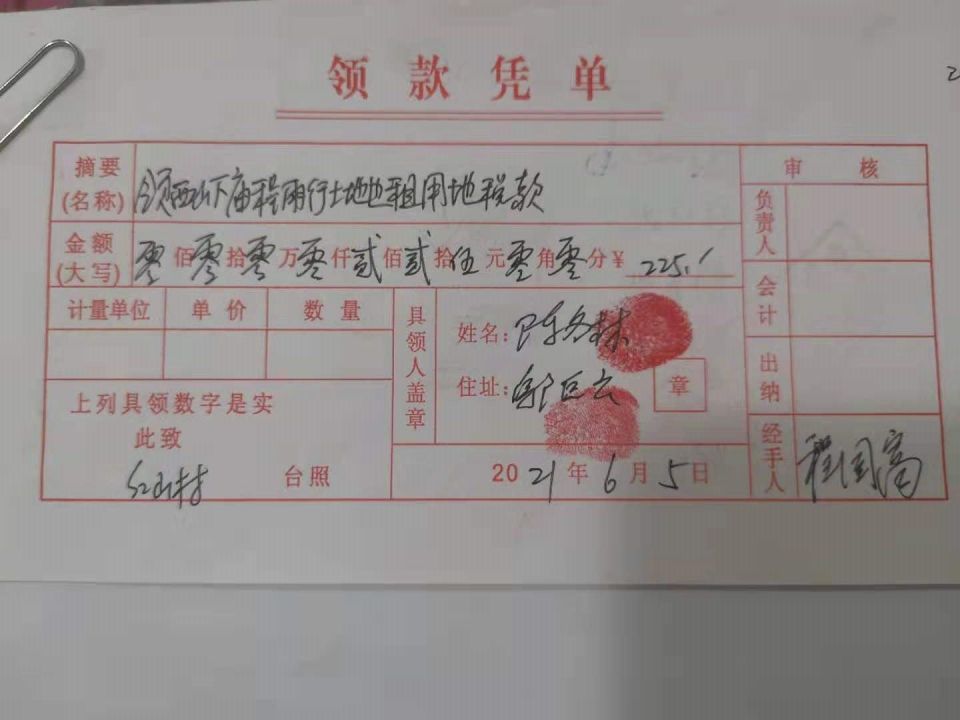 领款凭单
摘要
(名称)
领西山下庙程雨行土地租用地税款
审 核
负责人
金额
(大写)
零佰零拾零万零仟贰佰贰拾伍元零角零分¥ 225.
会计
计量单位 单价 数量
具领人盖章
姓名: 陈冬林
住址:
章
出纳
上列具领数字是实
此致
红山村 台照
2021年6月5日
经手人
程国富